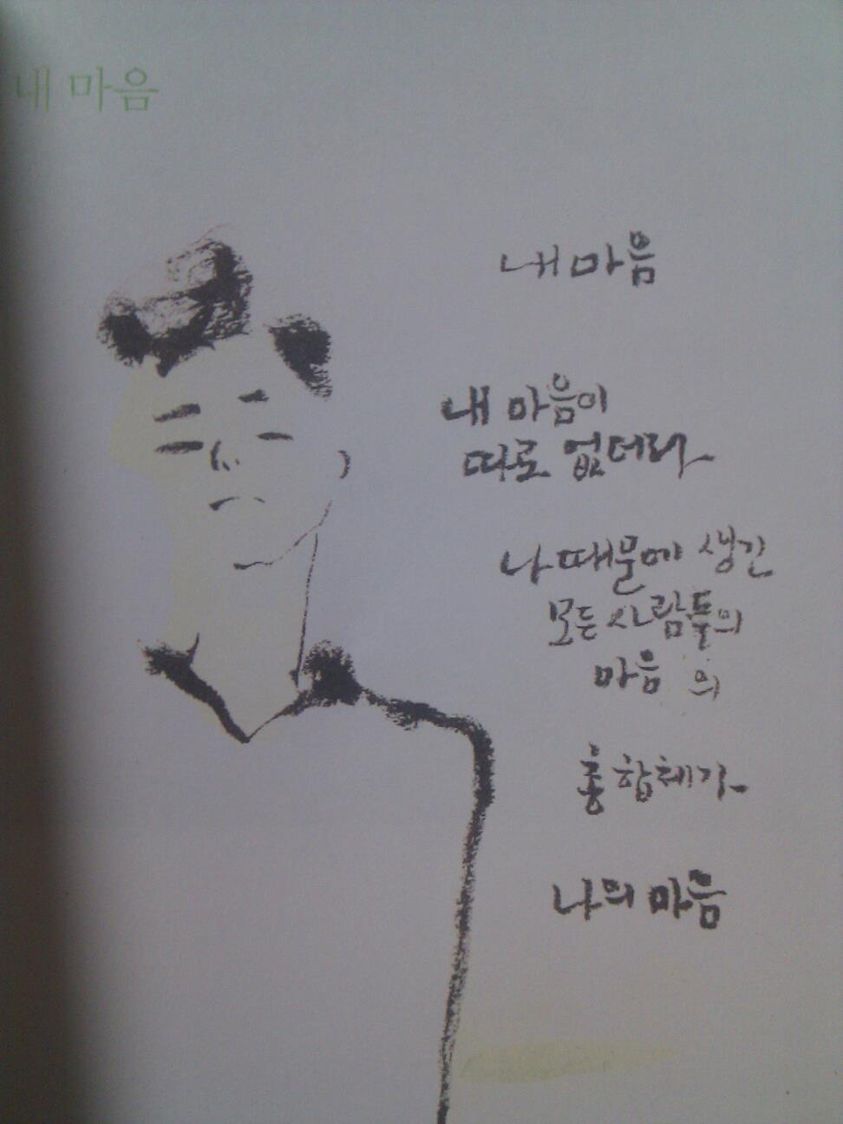 내 마음
내 마음
내 마음이
따로 없더라
나 때문에 생긴
모든 사람들의
마음 의
종합체가
나의 마음